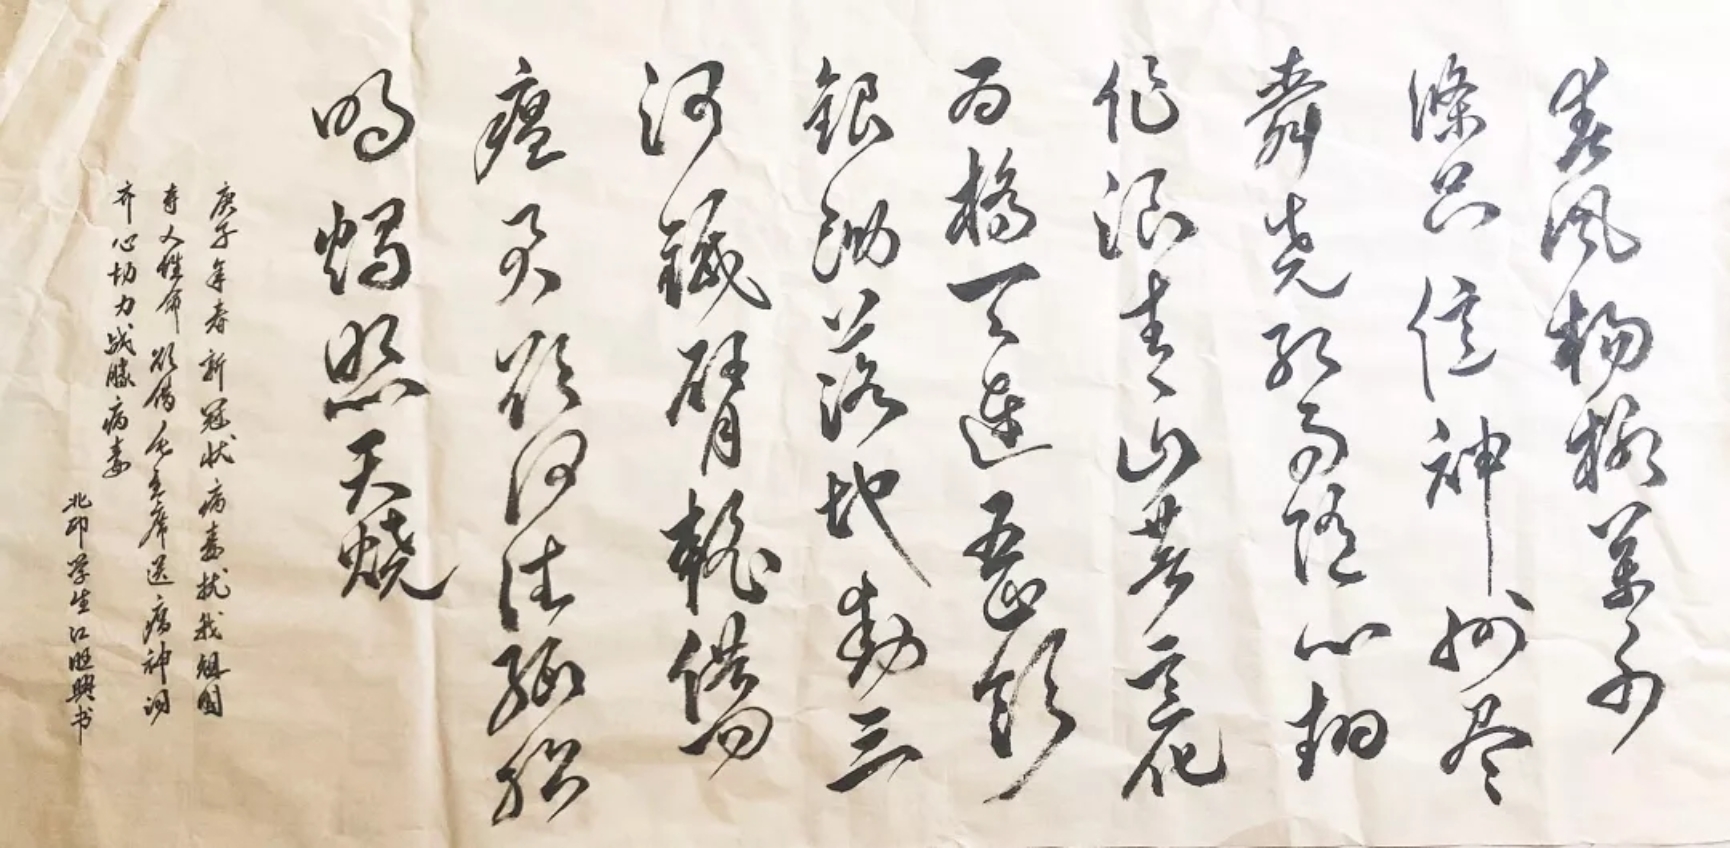 春风杨柳萬千
條六億神州尽
舜尧红雨随心翻
作浪青山著意化
为橋天連五岭
銀鋤落地動三
河鐵臂摇借问
瘟君欲何往纸船
明燭照天烧
庚子年春新冠状病毒扰我祖国
夺人性命欲借毛主席送瘟神词
齐心协力战胜病毒
北印学生江旺興书